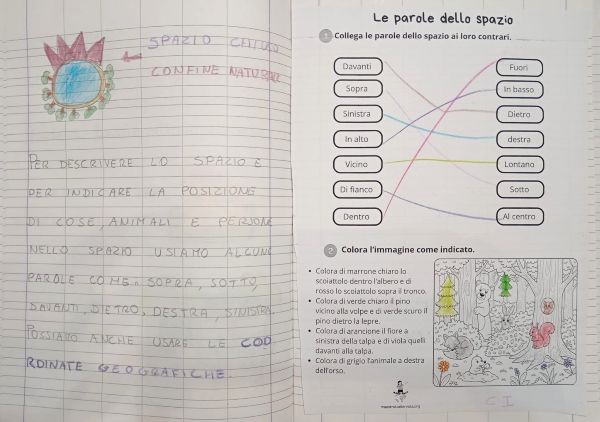 SPAZIO CHIUSO
CONFINE NATURALE
PER DESCRIVERE LO SPAZIO E
PER INDICARE LA POSIZIONE
DI COSE, ANIMALI E PERSONE
NELLO SPAZIO USIAMO ALCUNE
PAROLE COME: SOPRA, SOTTO,
DAVANTI, DIETRO, DESTRA, SINISTRA.
POSSIAMO ANCHE USARE LE COO
RDINATE GEOGRAFICHE.
Le parole dello spazio
1 Collega le parole dello spazio ai loro contrari.
Davanti Fuori
Sopra In basso
Sinistra Dietro
In alto destra
Vicino Lontano
Di fianco Sotto
Dentro Al centro
2 Colora l'immagine come indicato.
• Colora di marrone chiaro lo
scoiattolo dentro l'albero e di
rosso lo scoiattolo sopra il tronco.
• Colora di verde chiaro il pino
vicino alla volpe e di verde scuro il
pino dietro la lepre.
• Colora di arancione il fiore a
sinistra della talpa e di viola quelli
davanti alla talpa.
• Colora di grigio l'animale a destra
dell'orso.